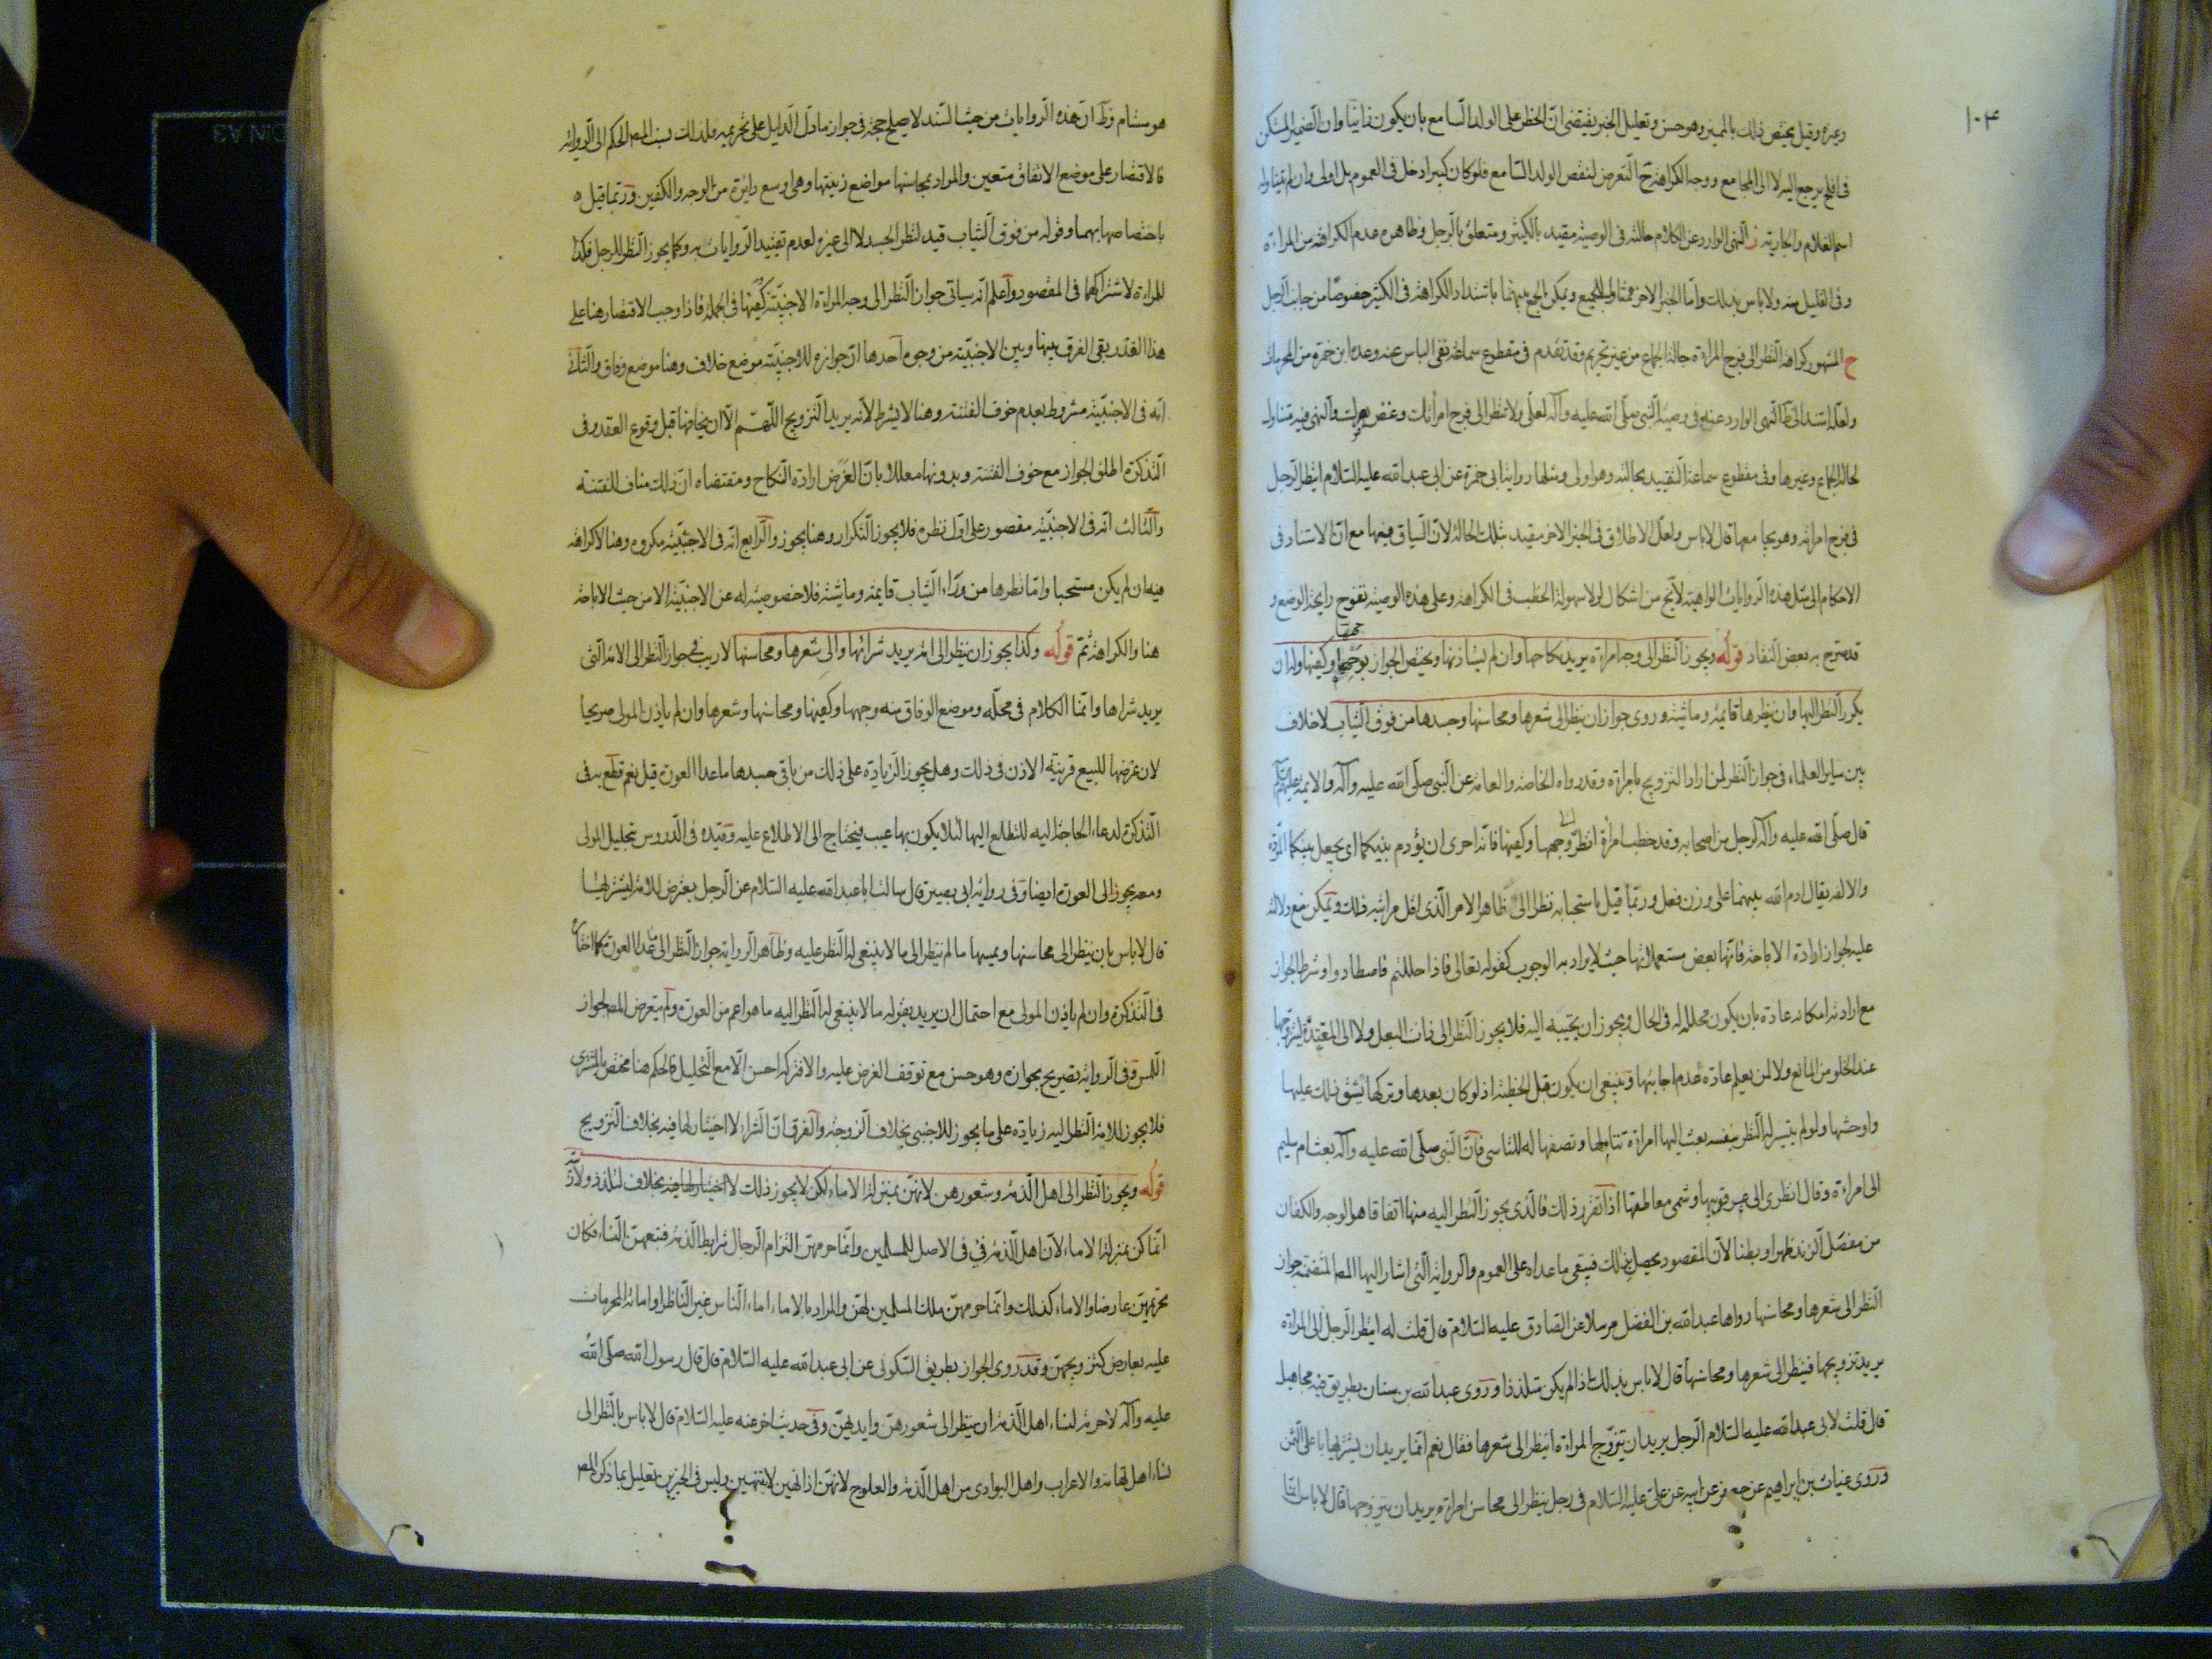 ١٠٤
وغيره وقيل يختص ذلك بالمميز وهو حسن وتعليل الخبر يقتضى ان الخطر على الولد السامع بان يكون زانيا وان الضمير المستكن
فى افلح يرجع اليه لا الى المجامع ووجه الكراهة ح التعرض لنقص الولد السامع فلو كان كبيرا دخل فى العموم بل اولى وان لم يتناوله
اسم الغلام والجارية ز النهى الوارد عن الكلام حالته فى الوصية مقيد بالكثير ومتعلق بالرجل وظاهره عدم الكراهة من المراءة
وفى القليل منه ولا باس بذلك واما الخبر الاخر فمتناول للجميع ويمكن الجمع بينهما باشتداد الكراهة فى الكثير خصوصا من جانب الرجل
ح المشهور كراهة النظر الى فرج المراءة حالة الجماع من غير تحريم وقد تقدم فى مقطوع سماعة نفى الباس عنه وعده ابن حمزة من المحرمات
ولعله استند الى ظ النهى الوارد عنه فى وصية النبى صلى الله عليه وآله لعلى ولا تنظر الى فرج امرأتك وغض بصرك والنهى فيه متناول
لحالة الجماع وغيرها وفى مقطوع سماعة التقييد بحالته وهو اولى ومثلها رواية ابى حمزة عن ابى عبد الله عليه السلام اينظر الرجل
فى فرج امراته وهو يجامعها قال لا باس ولعل الاطلاق فى الخبر الاخر مقيد بتلك الحالة لان السياق فيها مع ان الاستناد فى
الاحكام الى مثل هذه الروايات الواهية لا يخ من اشكال لولا سهولة الخطب فى الكراهة وعلى هذه الوصية تفوح رايحة الوضع و
قد صرح به بعض النقاد قوله ويجوز النظر الى وجه امراءة يريد نكاحها وان لم يستاذنها ويختص الجواز بوجهها وكفيها وله ان
يكرر النظر اليها وان ينظرها قايمة وماشية وروى جواز ان ينظر الى شعرها ومحاسنها وجسدها من فوق الثياب لا خلاف
بين ساير العلماء فى جواز النظر لمن اراد التزويج بامراءة وقد رواه الخاصة والعامة عن النبى صلى الله عليه وآله والايمة عليهم
قال صلى الله عليه وآله لرجل من اصحابه وقد خطب امرأة انظر الى وجهها وكفيها فانه احرى ان يؤدم بينكما اى يجعل بينكما المودة
والالفة يقال ادم الله بينهما على وزن فعل وربما قيل باستحبابه نظرا الى ظاهر الامر الذى اقل مراتبه ذلك ويمكن منع دلالته
عليه لجواز ارادة الاباحة فانها بعض مستعملاتها حيث لا يراد به الوجوب كقوله تعالى فاذا حللتم فاصطادوا وشرط الجواز
مع ارادته امكانه عادة بان يكون محللة له فى الحال ويجوز ان تجيبه اليه فلا يجوز النظر الى ذات البعل ولا الى المعتدة ليتزوجها
عند الخلو من المانع ولا لمن يعلم عادة عدم اجابتها وينبغى ان يكون قبل الخطبة اذ لو كان بعدها وتركها يشق ذلك عليها
واوحشها ولو لم يتيسر له النظر بنفسه بعث اليها امراءة تتاملها وتصفها له للتاسى فان النبى صلى الله عليه وآله بعث ام سليم
الى امراءة وقال انظرى الى عرقوبيها وشمى معاطفها اذا تقرر ذلك فالذى يجوز النظر اليه منها اتفاقا هو الوجه والكفان
من مفصل الزند ظهرا وبطنا لان المقصود يحصل بذلك فيبقى ما عداه على العموم والرواية التى اشار اليها المص المتضمنة جواز
النظر الى شعرها ومحاسنها رواها عبد الله بن الفضل مرسلا عن الصادق عليه السلام قال قلت له اينظر الرجل الى المراءة
يريد تزويجها فينظر الى شعرها ومحاسنها قال لا باس بذلك اذا لم يكن متلذذا وروى عبد الله بن سنان بطريق فيه مجاهيل
قال قلت لابى عبد الله عليه السلام الرجل يريد ان يتزوج المراءة اينظر الى شعرها فقال نعم انما يريد ان يشتريها باغلى الثمن
وروى غياث بن ابراهيم عن جعفر عن ابيه عن على عليه السلام فى رجل ينظر الى محاسن امراءة يريد ان يتزوجها قال لا باس انما
هو مستام وظ ان هذه الروايات من حيث السند لا يصلح حجة فى جواز ما دل الدليل على تحريمه فلذلك نسب المص الحكم الى الرواية
فالاقتصار على موضع الاتفاق متعين والمراد بمحاسنها مواضع زينتها وهى اوسع دائرة من الوجه والكفين وربما قيل
باختصاصها بهما وقوله من فوق الثياب قيد لنظر الجسد لا الى غيره لعدم تقييد الروايات به وكما يجوز النظر للرجل فكذا
للمراءة لاشتراكهما فى المقصود واعلم انه سياتى جواز النظر الى وجه المراءة الاجنبية وكفيها فى الجملة فاذا وجب الاقتصار هنا على
هذا القدر بقى الفرق بينها وبين الاجنبية من وجوه احدها ان جوازه للاجنبية موضع خلاف وهنا موضع وفاق والثانى
انه فى الاجنبية مشروط بعدم خوف الفتنة وهنا لا يشترط لانه يريد التزويج اللهم الا ان يخافها قبل وقوع العقد وفى
التذكرة اطلق الجواز مع خوف الفتنة وبدونها معللا بان الغرض ارادة النكاح ومقتضاه ان ذلك مناف للفتنة
والثالث انه فى الاجنبية مقصور على اول نظرة فلا يجوز التكرار وهنا يجوز والرابع انه فى الاجنبية مكروه وهنا لا كراهة
فيه ان لم يكن مستحبا واما نظرها من وراء الثياب قايمة وماشية فلا خصوصية له عن الاجنبية الا من حيث الاباحة
هنا والكراهة ثم قوله وكذا يجوز ان ينظر الى امة يريد شرائها والى شعرها ومحاسنها لا ريب فى جواز النظر الى الامة التى
يريد شراها وانما الكلام فى محله وموضع الوفاق منه وجهها وكفيها ومحاسنها وشعرها وان لم ياذن المولى صريحا
لان عرضها للبيع قرينة الاذن فى ذلك وهل يجوز الزيادة على ذلك من باقى جسدها ما عدا العورة قيل نعم قطع به فى
التذكرة لدعاء الحاجة اليه للتطلع اليها لئلا يكون بها عيب فيحتاج الى الاطلاع عليه وقيده فى الدروس بتحليل المولى
ومعه يجوز الى العورة ايضا وفى رواية ابى بصير قال سالت ابا عبد الله عليه السلام عن الرجل يعترض للامة ليشتريها
قال لا باس بان ينظر الى محاسنها ويمسها ما لم ينظر الى ما لا ينبغى له النظر عليه وظاهر الرواية جواز النظر الى ما عدا العورة كما اختاره
فى التذكرة وان لم ياذن المولى مع احتمال ان يريد بقوله ما لا ينبغى له النظر اليه ما هو اعم من العورة ولم يتعرض المص لجواز
اللمس وفى الرواية تصريح بجوازه وهو حسن مع توقف الغرض عليه والا فتركه احسن الا مع التحليل فالحكم هنا مختص بالمشترى
فلا يجوز للامة النظر اليه زيادة على ما يجوز للاجنبى بخلاف الزوجة والفرق ان الشراء لا اختيار لها فيه بخلاف التزويج
قوله ويجوز النظر الى اهل الذمة وشعورهن لانهن بمنزلة الاماء لكن لا يجوز ذلك لتلذذ ولا ريبة
انما كن بمنزلة الاماء لان اهل الذمة فئ فى الاصل للمسلمين وانما حرمهن التزام الرجال شرايط الذمة فتبعهن النساء فكان
تحريمهن عارضا والاماء كذلك وانما حرمهن ملك المسلمين لهن والمراد بالاماء اماء الناس غير الناظر او امائه المحرمات
عليه بعارض كتزويجهن وقد روى الجواز بطريق السكونى عن ابى عبد الله عليه السلام قال قال رسول الله صلى الله
عليه وآله لا حرمة لنساء اهل الذمة ان ينظر الى شعورهن وايديهن وفى حديث اخر عنه عليه السلام قال لا باس بالنظر الى
نساء اهل تهامة والاعراب واهل البوادى من اهل الذمة والعلوج لانهن اذا نهين لا ينتهين وليس فى الخبرين تعليل بما ذكره المص